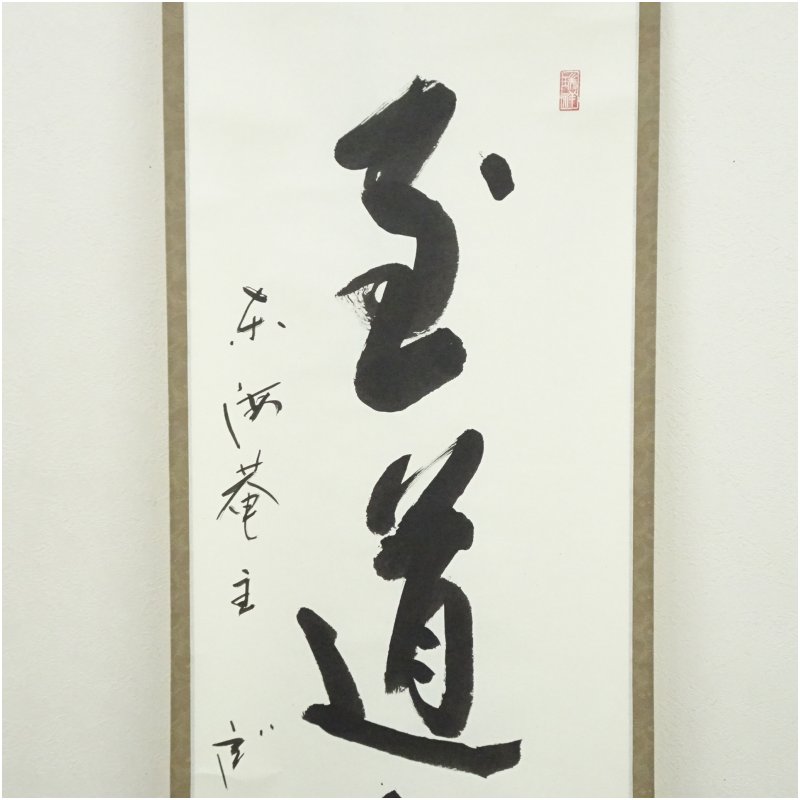 至道
東海菴主